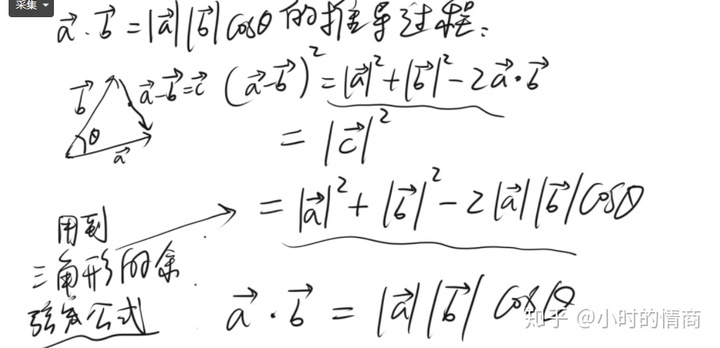 采集
a⃗·b⃗=|a⃗||b⃗|cosθ的推导过程:
b⃗ a⃗-b⃗=c⃗ (a⃗-b⃗)²=|a⃗|²+|b⃗|²-2a⃗·b⃗
θ
a⃗
=|c⃗|²
=|a⃗|²+|b⃗|²-2|a⃗||b⃗|cosθ
用到
三角形的余
弦公式
a⃗·b⃗=|a⃗||b⃗|cosθ
知乎 @小时的情商